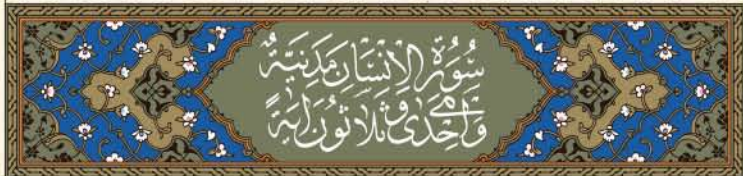 سُورَةُ الْاِنْسَانِ مَدَنِيَّةٌ
وَهِيَ اِحْدٰى وَثَلَاثُونَ اٰيَةً